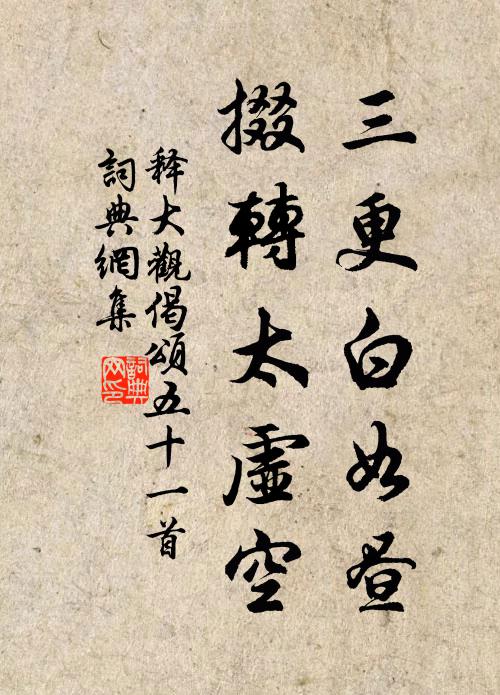 三更白如昼
掇轉太虛空
释大觀偈頌五十一首
詞典網集
詞典網印